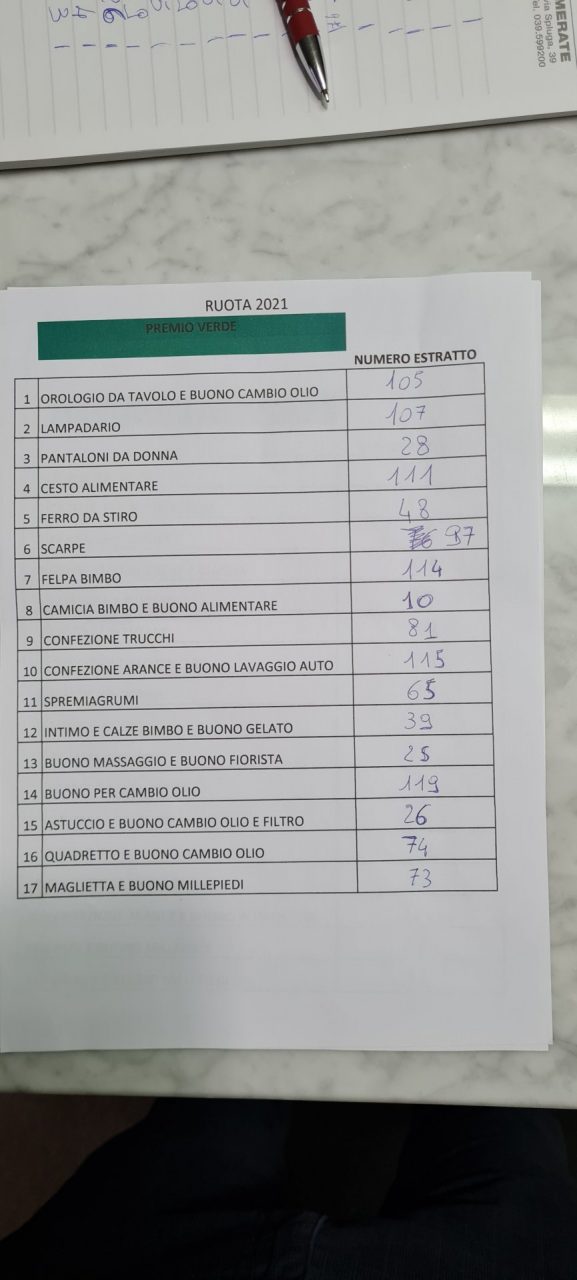 MERATE
via Spluga, 39
Tel. 039.599200
RUOTA 2021
PREMIO VERDE
NUMERO ESTRATTO
1 OROLOGIO DA TAVOLO E BUONO CAMBIO OLIO 105
2 LAMPADARIO 107
3 PANTALONI DA DONNA 28
4 CESTO ALIMENTARE 111
5 FERRO DA STIRO 48
6 SCARPE 97
7 FELPA BIMBO 114
8 CAMICIA BIMBO E BUONO ALIMENTARE 10
9 CONFEZIONE TRUCCHI 81
10 CONFEZIONE ARANCE E BUONO LAVAGGIO AUTO 115
11 SPREMIAGRUMI 65
12 INTIMO E CALZE BIMBO E BUONO GELATO 39
13 BUONO MASSAGGIO E BUONO FIORISTA 25
14 BUONO PER CAMBIO OLIO 119
15 ASTUCCIO E BUONO CAMBIO OLIO E FILTRO 26
16 QUADRETTO E BUONO CAMBIO OLIO 74
17 MAGLIETTA E BUONO MILLEPIEDI 73